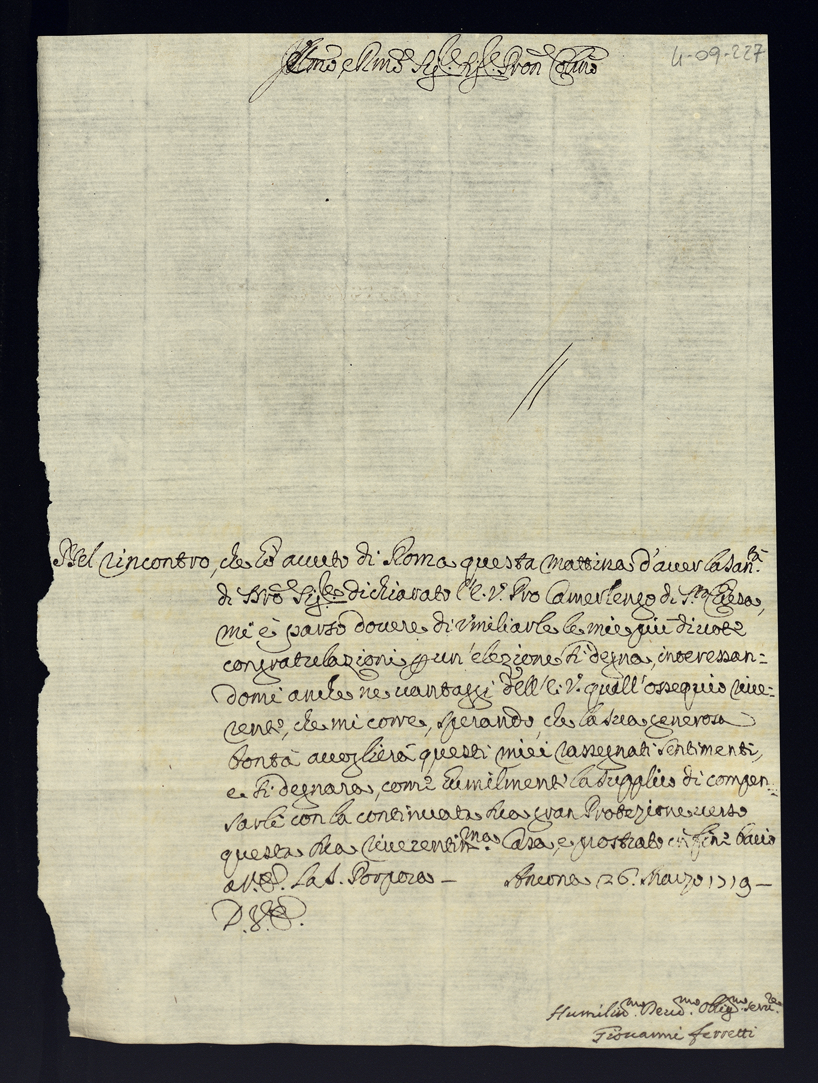 4-09-227
Ill.mo e R.mo Sig.re Sig.re Pron Col.mo
Nel rincontro, che hò avuto di Roma questa mattina d'aver la San.tà
di Nro Sig.re dichiarato l'E. V. Pro Camerlengo di S.ta Chiesa,
mi è parso dovere di umiliarle le mie più divote
congratulazioni p un'elezione sì degna, interessan=
domi anche ne vantaggi dell'E. V. quell'ossequio rive=
rente, che mi corre, sperando, che la sua generosa
bontà accoglierà questi miei rassegnati sentimenti,
e si degnarà, come humilmente la supplico di compen=
sarli con la continuata sua gran Protezione verso
questa sua riverentis.ma Casa, e prostrato in fine bacio
a V. E. la S. Porpora — Ancona 26. Marzo 1719 —
D. V. E.
Humiliss.mo Devo.mo Oblig.mo Serv.re
Giovanni Ferretti